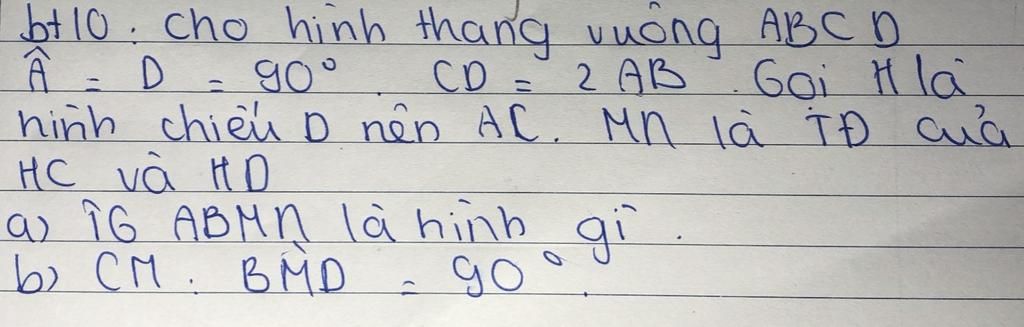 bt10. cho hình thang vuông ABCD
Â = D = 90°. CD = 2AB. Gọi H là
hình chiếu D nên AC. MN là TĐ của
HC và HD
a) TG ABMN là hình gì.
b) CM: BM̂D = 90°.